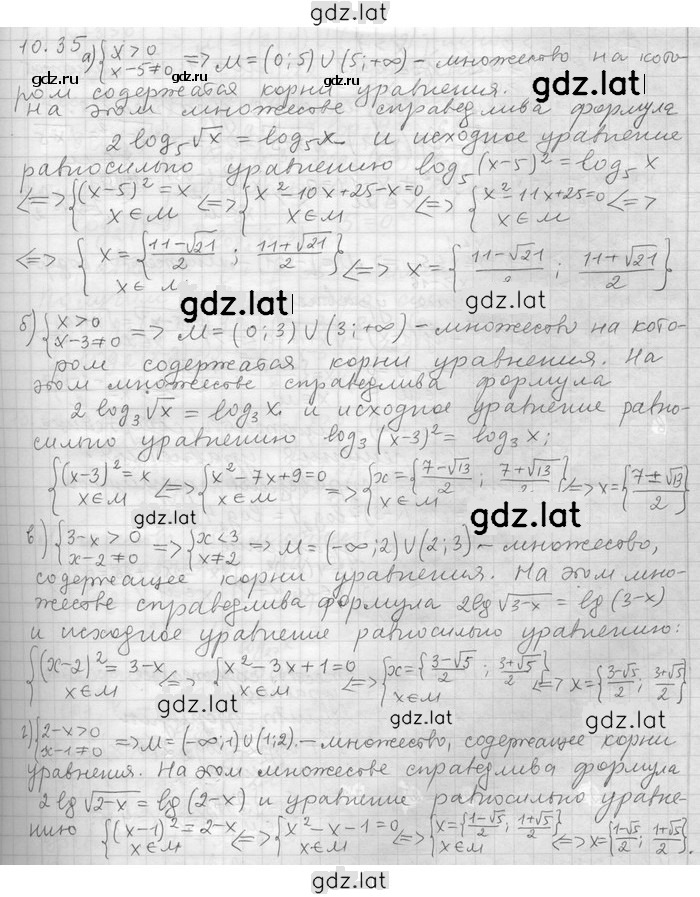 gdz.lat
10.35
а) {x>0 x-5≠0 => M=(0;5)∪(5;+∞) - множество на кото-
ром содержатся корни уравнения.
На этом множестве справедлива формула
2log₅√x = log₅x и исходное уравнение
равносильно уравнению log₅(x-5)²=log₅x
<=> {(x-5)²=x x∈M <=> {x²-10x+25-x=0 x∈M <=> {x²-11x+25=0 x∈M <=>
<=> {x={(11-√21)/2 ; (11+√21)/2} x∈M <=> x={(11-√21)/2 ; (11+√21)/2}
gdz.lat
б) {x>0 x-3≠0 => M=(0;3)∪(3;+∞) - множество на кото-
ром содержатся корни уравнения. На
этом множестве справедлива формула
2log₃√x = log₃x и исходное уравнение равно-
сильно уравнению log₃(x-3)²=log₃x;
{(x-3)²=x x∈M <=> {x²-7x+9=0 x∈M => {x={(7-√13)/2 ; (7+√13)/2} x∈M <=> x={(7±√13)/2}
gdz.lat
в) {3-x>0 x-2≠0 => {x<3 x≠2 => M=(-∞;2)∪(2;3) - множество,
содержащее корни уравнения. На этом мно-
жестве справедлива формула 2lg√(3-x) = lg(3-x)
и исходное уравнение равносильно уравнению:
{(x-2)²=3-x x∈M <=> {x²-3x+1=0 x∈M <=> {x={(3-√5)/2 ; (3+√5)/2} x∈M <=> x={(3-√5)/2 ; (3+√5)/2}
gdz.lat
г) {2-x>0 x-1≠0 => M=(-∞;1)∪(1;2) - множество, содержащее корни
уравнения. На этом множестве справедлива формула
2lg√(2-x) = lg(2-x) и уравнение равносильно уравне-
нию {(x-1)²=2-x x∈M <=> {x²-x-1=0 x∈M <=> {x={(1-√5)/2 ; (1+√5)/2} x∈M <=> x={(1-√5)/2 ; (1+√5)/2}.
gdz.lat